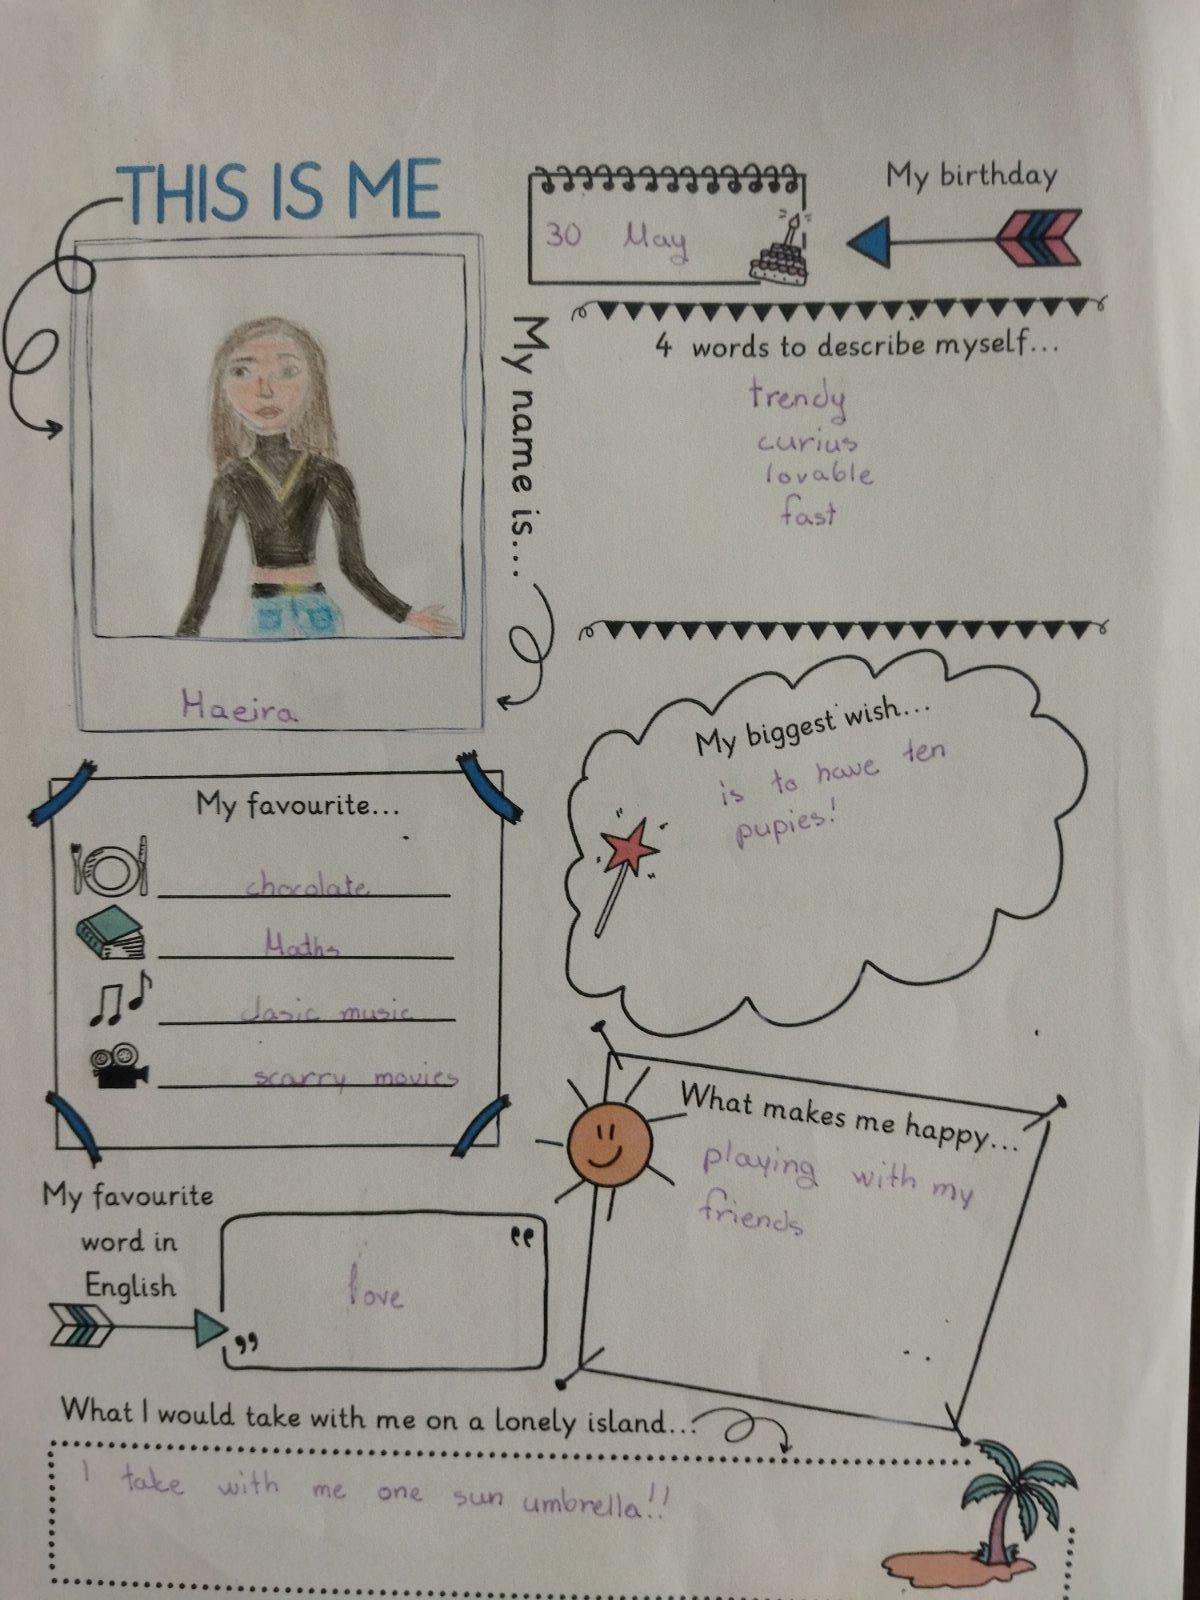 THIS IS ME
30 May
My birthday
My name is...
Maeira
4 words to describe myself...
trendy
curius
lovable
fast
My biggest wish...
is to have ten
pupies!
My favourite...
chocolate
Maths
clasic music
scarry movies
What makes me happy...
playing with my
friends
My favourite
word in
English
love
What I would take with me on a lonely island...
I take with me one sun umbrella!!